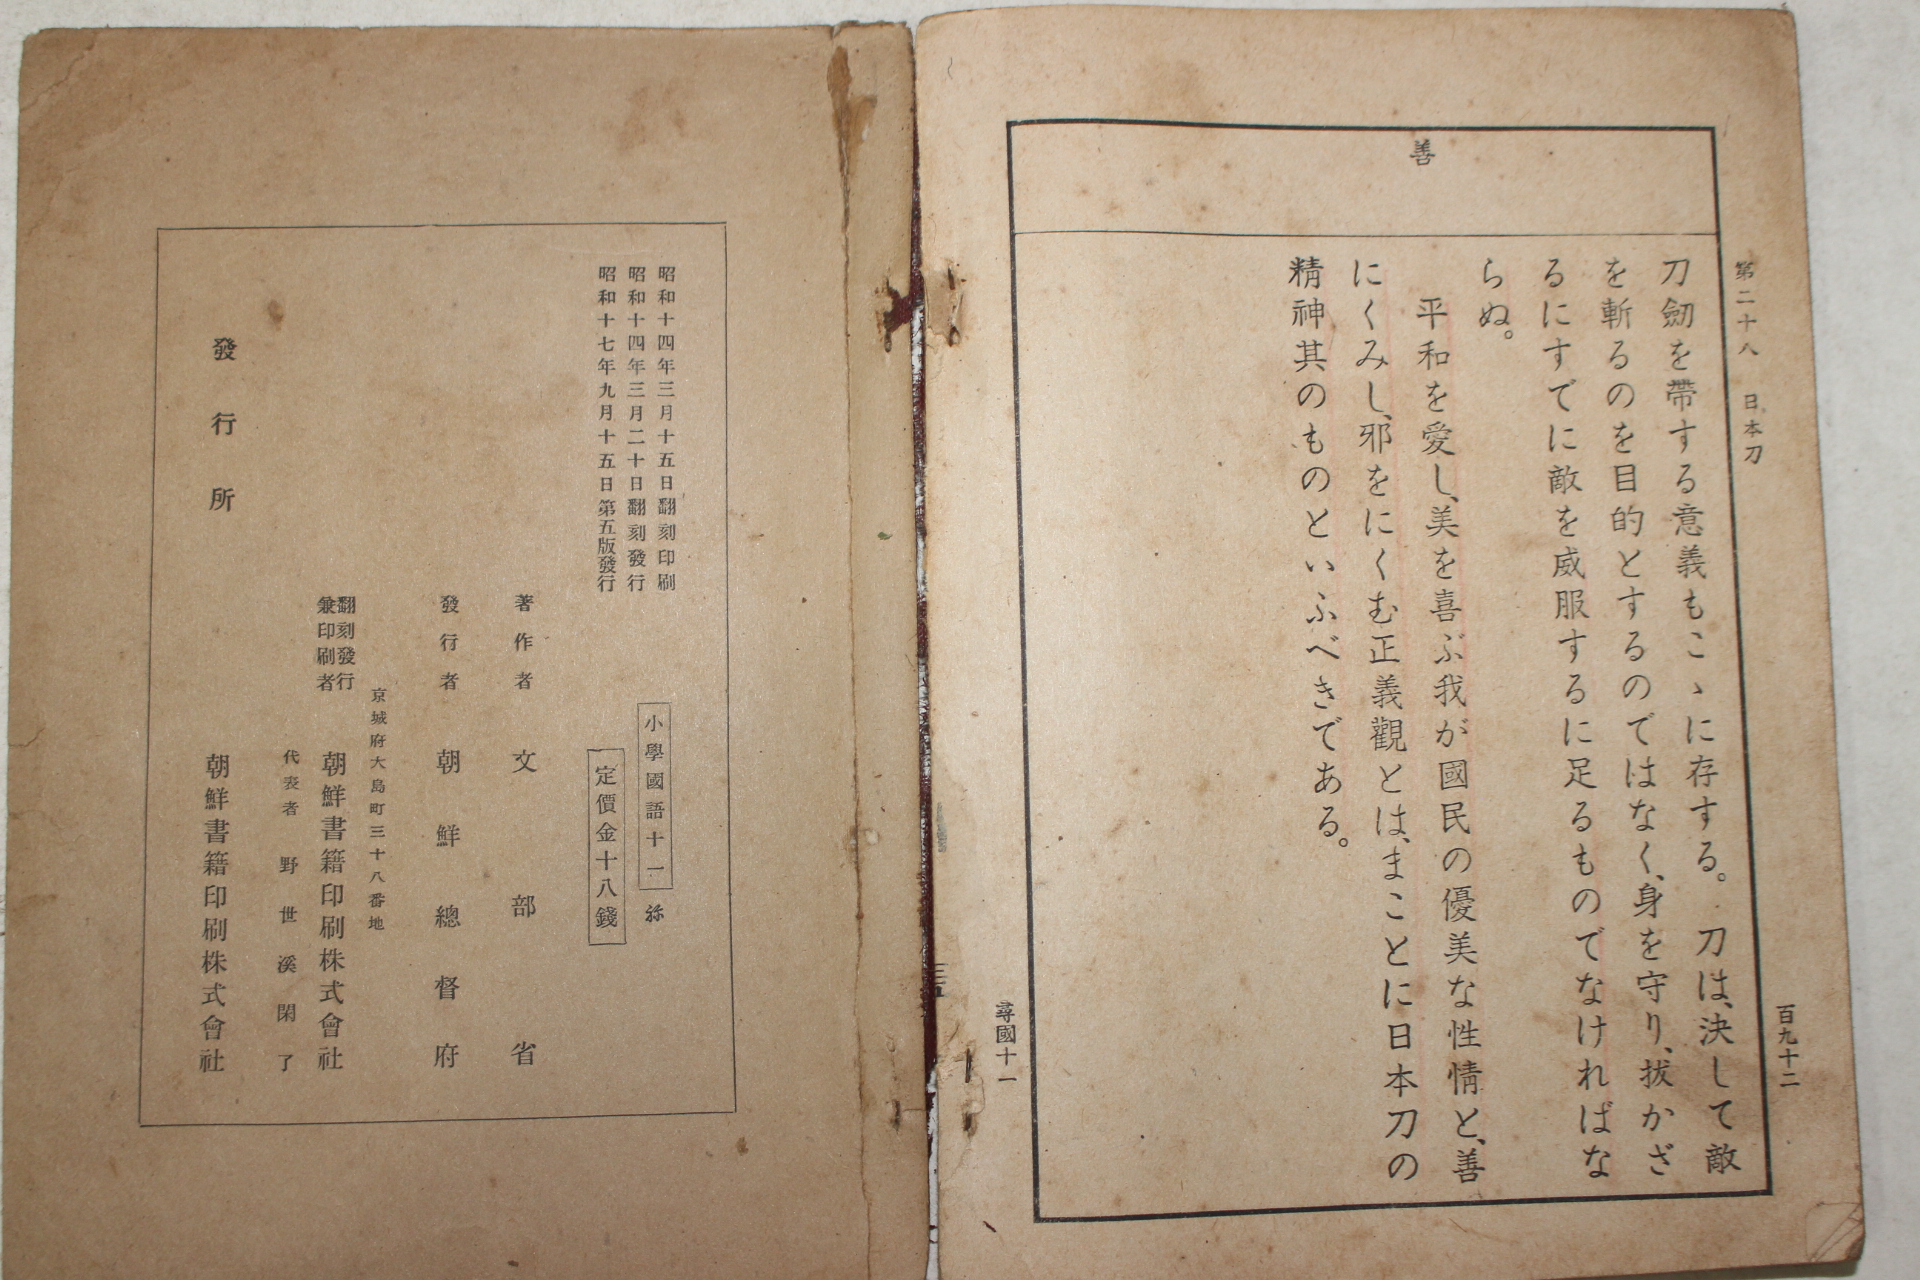 第二十八 日本刀
百九十二
善
刀劒を帶する意義もこゝに存する。刀は、決して敵
を斬るのを目的とするのではなく、身を守り、拔かざ
るにすでに敵を威服するに足るものでなければな
らぬ。
平和を愛し、美を喜ぶ我が國民の優美な性情と、善
にくみし、邪をにくむ正義觀とは、まことに日本刀の
精神其のものといふべきである。
尋國十一
昭和十四年三月十五日翻刻印刷
昭和十四年三月二十日翻刻發行
昭和十七年九月十五日第五版發行
小學國語十一
定價金十八錢
著作者 文部省
發行者 朝鮮總督府
京城府大島町三十八番地
翻刻發行
兼印刷者 朝鮮書籍印刷株式會社
代表者 野世溪閑了
發行所 朝鮮書籍印刷株式會社